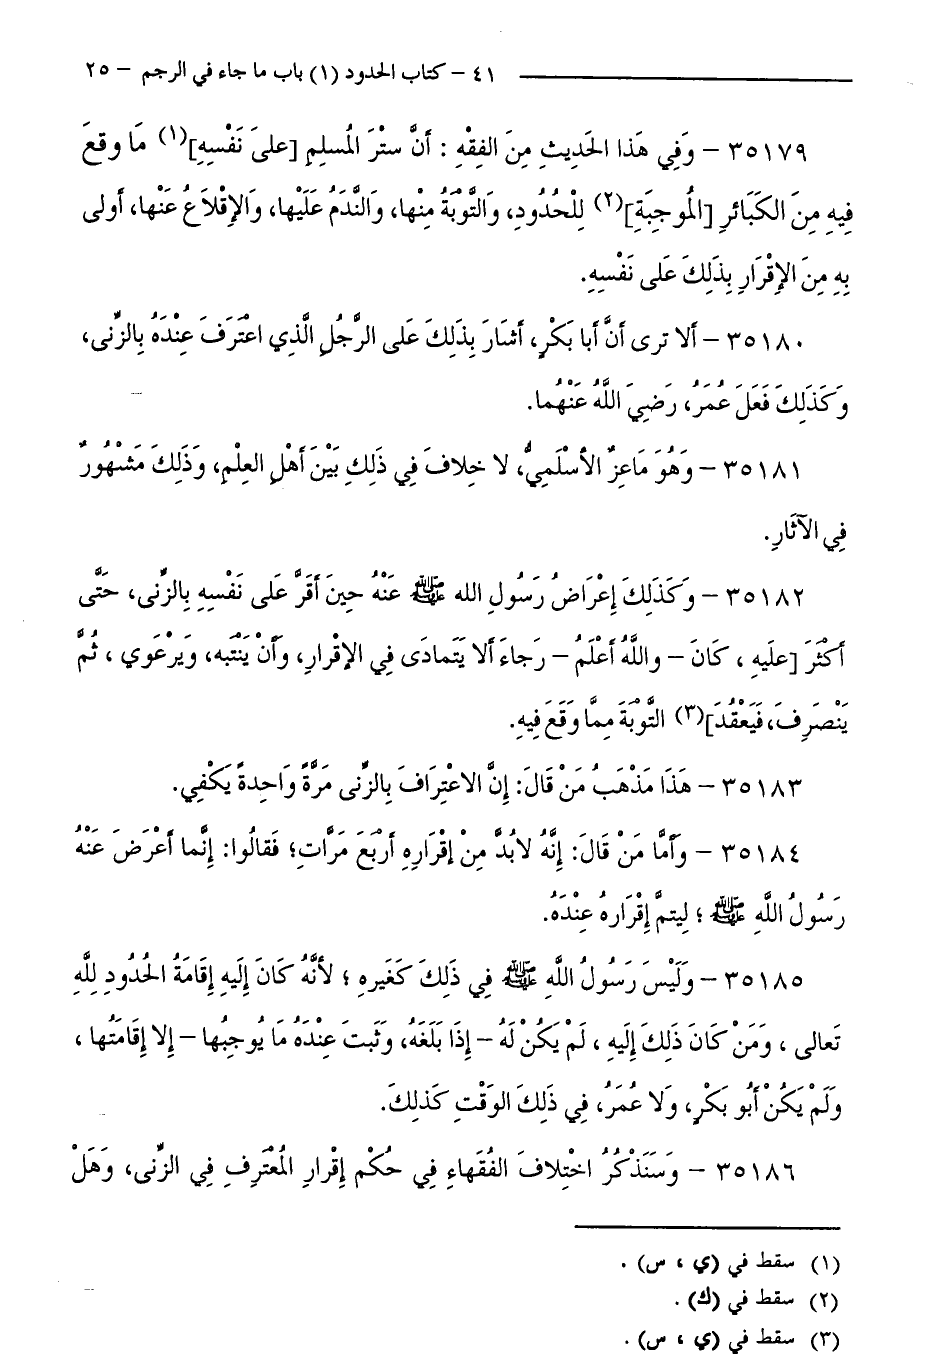 ٤١ – كتاب الحدود (١) باب ما جاء في الرجم – ٢٥
٣٥١٧٩ – وَفِي هَذا الحَديثِ مِنَ الفِقْهِ : أنَّ سترَ المُسلِمِ [علىَ نَفْسِهِ](١) مَا وقعَ
فِيهِ مِنَ الكَبَائرِ [المُوجِبَةِ](٢) لِلْحُدُودِ، وَالتَّوْبَةُ مِنْها، وَالنَّدَمُ عَلَيْها، وَالإِقْلاَعُ عَنْها، أَولى
بِهِ مِنَ الإِقْرَارِ بِذَلِكَ عَلى نَفْسِهِ.
٣٥١٨٠ – أَلا ترى أنَّ أبا بَكْرٍ، أشَارَ بِذَلِكَ عَلى الرَّجُلِ الَّذِي اعْتَرَفَ عِنْدَهُ بِالزِّنى،
وكَذَلِكَ فَعَلَ عُمَرُ، رَضِيَ اللَّهُ عَنْهُما.
٣٥١٨١ – وَهُوَ مَاعِزٌ الأَسْلَمِيُّ، لا خِلافَ فِي ذَلِكِ بَيْنَ أَهْلِ العِلْمِ، وَذَلِكَ مَشْهُورٌ
فِي الآثَارِ.
٣٥١٨٢ – وكَذَلِكَ إِعْرَاضُ رَسُولِ الله ﷺ عَنْهُ حِينَ أَقَرَّ عَلى نَفْسِهِ بِالزِّنى، حَتَّى
أكْثَرَ [علَيهِ ، كَانَ – واللَّهُ أعْلَمُ – رَجاءَ ألا يَتَمادَى فِي الإِقْرارِ، وَأَنْ يَنْتَبه، ويَرْعَوي ، ثُمَّ
يَنْصَرِفَ، فَيَعْقُدَ](٣) التَّوْبَةَ مِمَّا وَقَعَ فِيهِ.
٣٥١٨٣ – هَذَا مَذْهَبُ مَنْ قَالَ: إِنَّ الاعْتِرَافَ بِالزِّنى مَرَّةً وَاحِدةً يَكْفِي.
٣٥١٨٤ – وَأَمَّا مَنْ قَالَ: إِنَّهُ لابُدَّ مِنْ إِقْرَارِهِ أَرْبَعَ مَرَّاتٍ؛ فَقالُوا: إِنَّما أَعْرَضَ عَنْهُ
رَسُولُ اللَّهِ ﷺ ؛ لِيتمَّ إِقْرَارهُ عِنْدَهُ.
٣٥١٨٥ – وَلَيْسَ رَسُولُ اللَّهِ ﷺ فِي ذَلِكَ كَغَيرِهِ ؛ لأَنَّهُ كَانَ إِلَيهِ إِقَامَةُ الحُدُودِ لِلَّهِ
تَعالى ، وَمَنْ كَانَ ذَلِكَ إِلَيهِ ، لَمْ يَكُنْ لَهُ – إِذَا بَلَغَهُ، وَثَبتَ عِنْدَهُ مَا يُوجِبُها – إِلا إِقَامَتُها ،
وَلَمْ يَكُنْ أَبُو بَكْرٍ، وَلا عُمَرُ، فِي ذَلِكَ الوَقْتِ كَذلِكَ.
٣٥١٨٦ – وَسَنَذْكُرُ اخْتِلافَ الفُقَهاءِ فِي حُكْمِ إِقْرارِ المُعْتَرِفِ فِي الزِّنى، وَهَلْ
(١) سقط في (ي ، س) .
(٢) سقط في (ك) .
(٣) سقط في (ي ، س) .